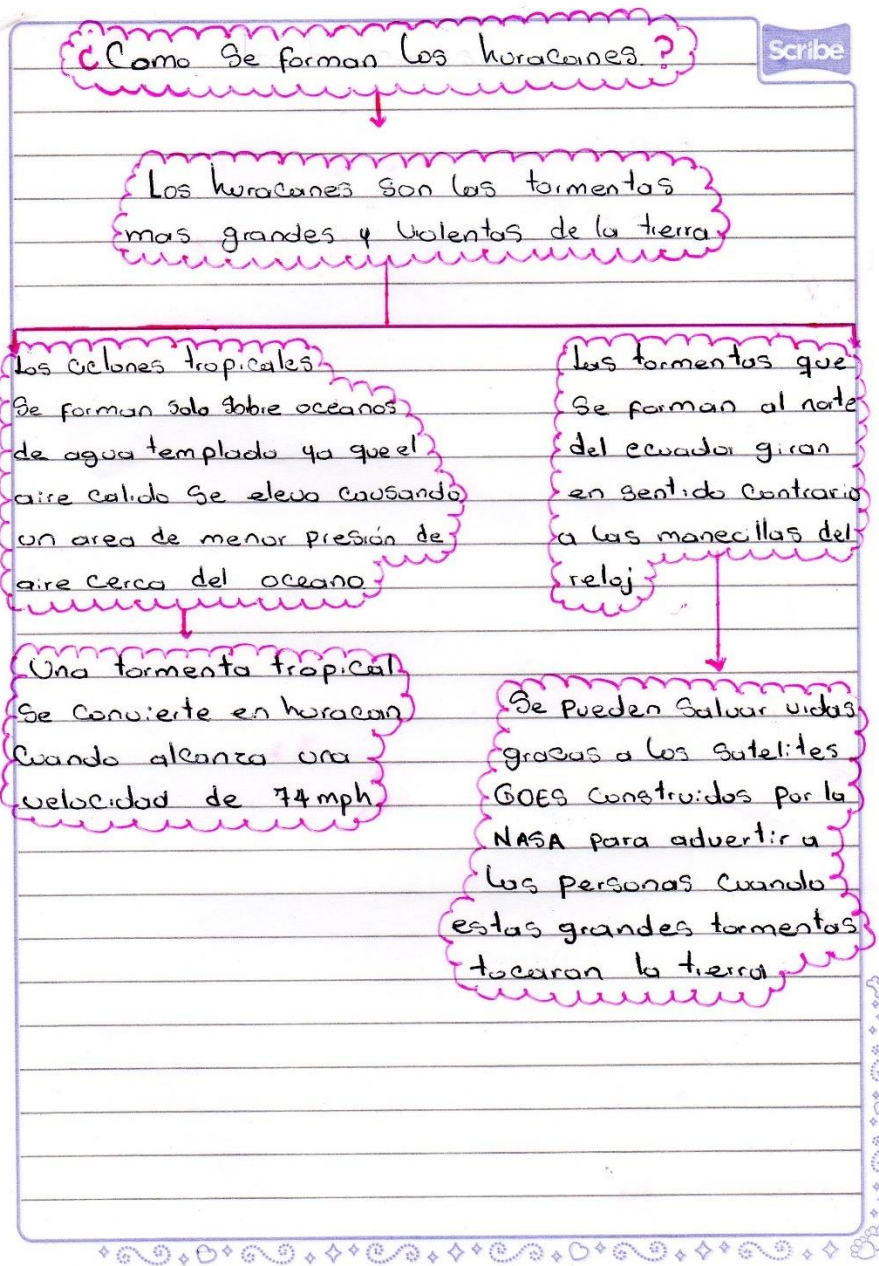 ¿Como Se forman los huracanes?
Scribe
Los huracanes Son las tormentas
mas grandes y Violentas de la tierra
Los ciclones tropicales
Se forman solo sobre oceanos
de agua templada ya que el
aire calido Se eleva causando
un area de menor presión de
aire cerca del oceano
Una tormenta tropical
Se convierte en huracan
Cuando alcanza una
velocidad de 74 mph
Las tormentas que
Se forman al norte
del ecuador giran
en sentido Contrario
a las manecillas del
reloj
Se pueden Salvar vidas
gracias a los Satelites
GOES Construidos por la
NASA para advertir a
las personas Cuando
estas grandes tormentas
tocaran la tierra